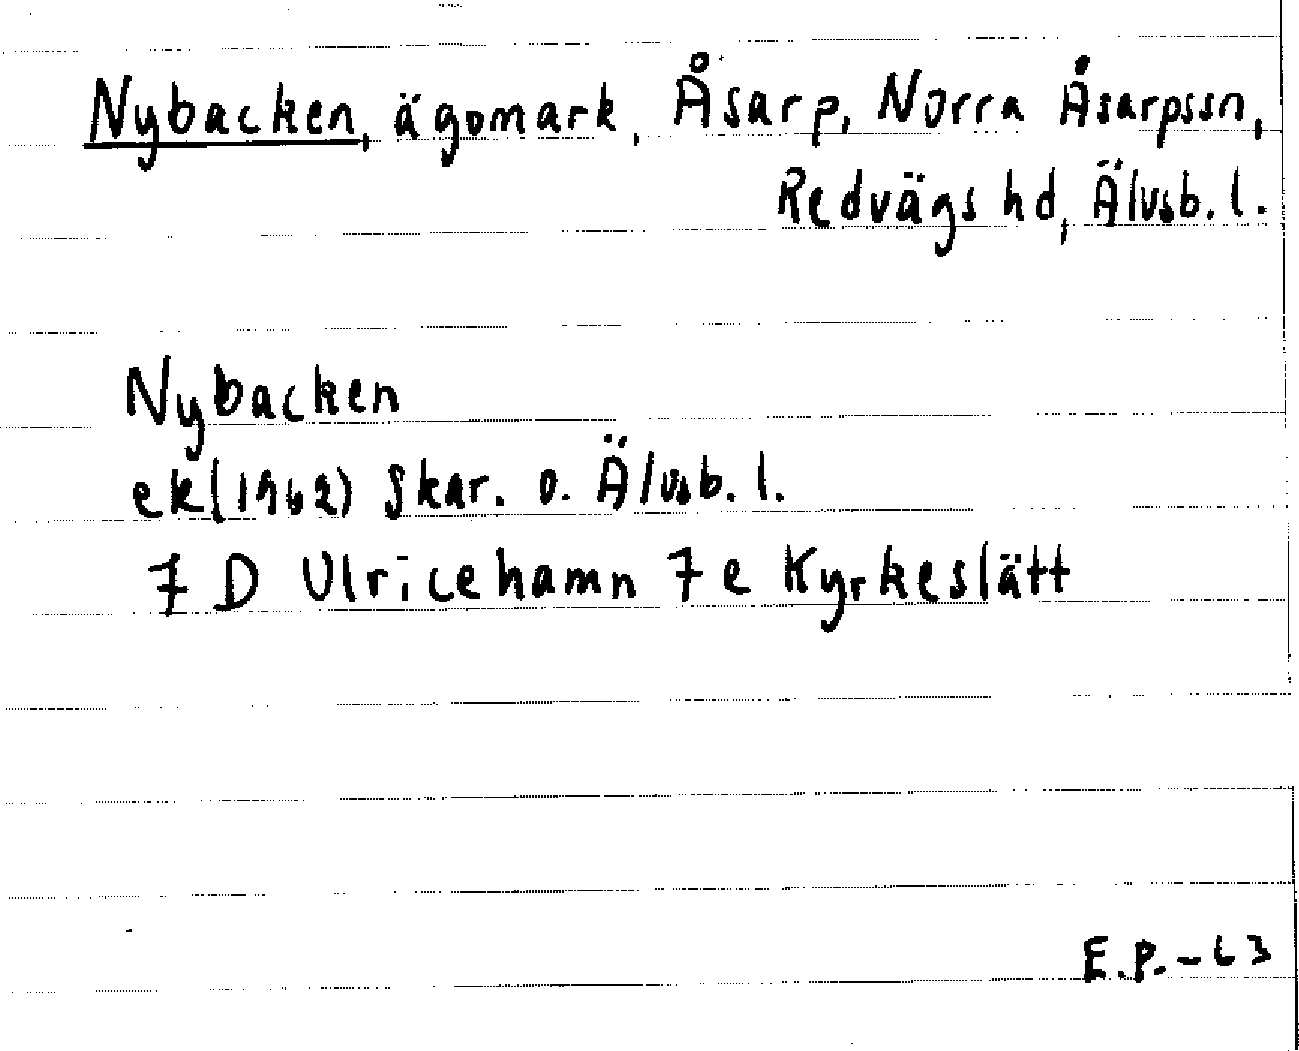 Nybacken, ägomark, Åsarp, Norra Åsarpssn,
Redvägs hd, Älvsb. l.
Nybacken
ek(1962) Skar. o. Älvsb. l.
7 D Ulricehamn 7 e Kyrkeslätt
E.P. - 63